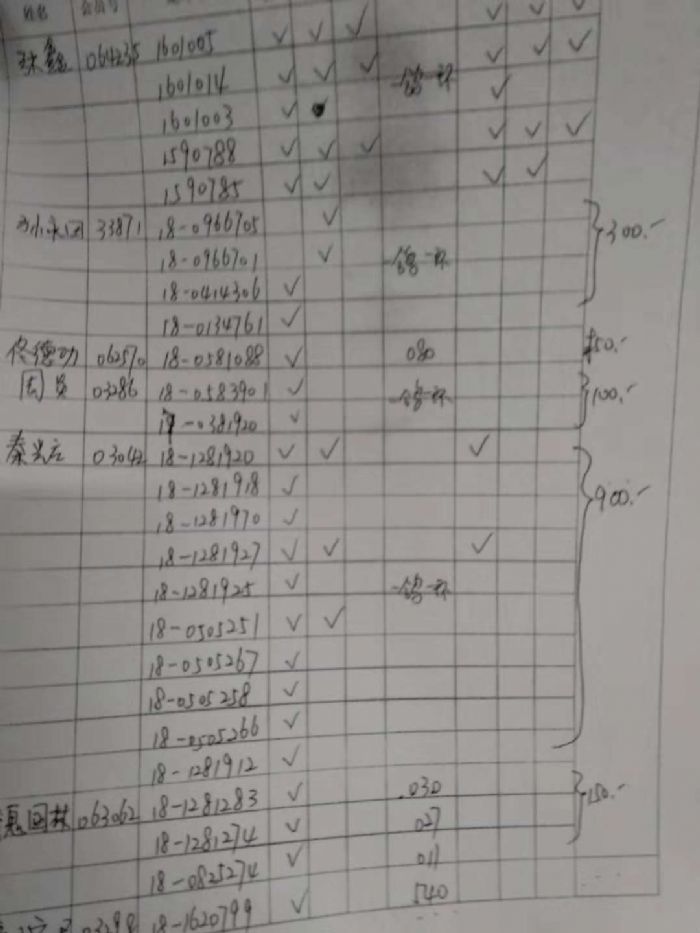 姓名 会员号
064235 1601005 ✓ ✓ ✓ ✓ ✓ ✓
1601014 ✓ ✓ ✓ ✓
1601003 ✓
1590788 ✓ ✓ ✓ ✓ ✓ ✓
1590785 ✓ ✓ ✓ ✓
33871 18-0966705 ✓
18-0966701 ✓ 300.-
18-0414306 ✓
18-0134761 ✓
佟德功 062570 18-0581088 ✓ 080 50.-
周 03286 18-0583901 ✓ 100.-
0381920 ✓
秦 03042 18-1281920 ✓ ✓ ✓
18-1281918 ✓ 900.-
18-1281970 ✓
18-1281927 ✓ ✓ ✓
18-1281925 ✓
18-0505251 ✓ ✓
18-0505267 ✓
18-0505258 ✓
18-0505266 ✓
18-1281912 ✓
惠回林 063062 18-1281283 ✓ 030 150.-
18-1281274 ✓ 027
18-0825274 ✓ 011
03298 18-1620799 ✓ 540